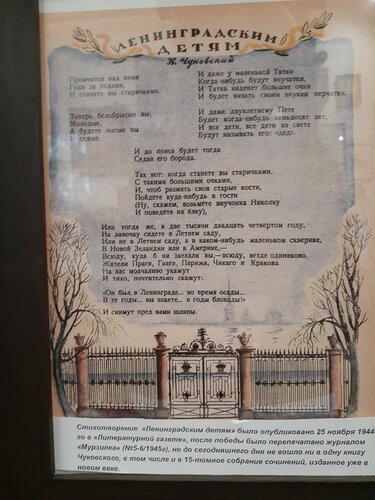 ЛЕНИНГРАДСКИМ
ДЕТЯМ
К. Чуковский
Промчатся над вами
Года за годами,
И станете вы старичками.
Теперь белобрысые вы,
Молодые,
А будете лысые вы
И седые.
И даже у маленькой Татки
Когда-нибудь будут внучатки,
И Татка наденет большие очки
И будет вязать своим внукам перчатки.
И даже двухлетнему Пете
Будет когда-нибудь семьдесят лет,
И все дети, все дети на свете
Будут называть его: «дед».
И до пояса будет тогда
Седая его борода.
Так вот: когда станете вы старичками,
С такими большими очками,
И, чтоб размять свои старые кости,
Пойдёте куда-нибудь в гости
(Ну, скажем, возьмёте внучонка Николку
И поведёте на ёлку),
Или тогда же, в две тысячи двадцать четвёртом году,
На лавочку сядете в Летнем саду,
Или не в Летнем саду, а в каком-нибудь маленьком скверике,
В Новой Зеландии или в Америке,—
Всюду, куда б ни заехали вы,—всюду, везде одинаково,
Жители Праги, Гааги, Парижа, Чикаго и Кракова
На вас молчаливо укажут
И тихо, почтительно скажут:
«Он был в Ленинграде... во время осады...
В те годы... вы знаете... в годы блокады!»
И снимут пред вами шляпы.
Стихотворение «Ленинградским детям» было опубликовано 25 ноября 1944-
го в «Литературной газете», после победы было перепечатано журналом
«Мурзилка» (№5-6/1945г), но до сегодняшнего дня не вошло ни в одну книгу
Чуковского, в том числе и в 15-томное собрание сочинений, изданное уже в
новом веке.